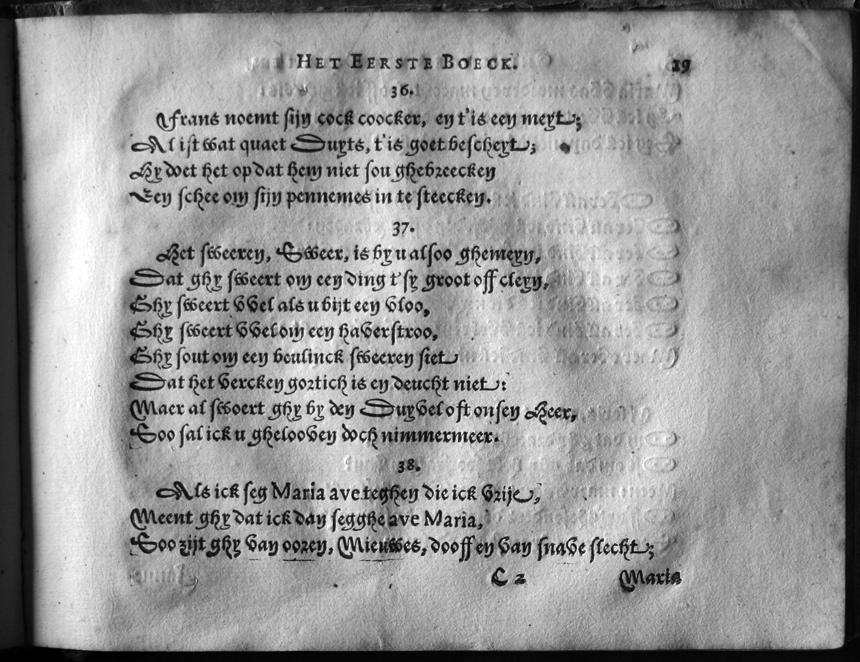 HET EERSTE BOECK. 19
36.
Frans noemt sijn cock coocker, en t'is een meyt;
Al ist wat quaet Duyts, t'is goet bescheyt;
Hy doet het op dat hem niet sou ghebreecken
Een schee om sijn pennemes in te steecken.
37.
Het sweeren, Sweer, is by u alsoo ghemeyn,
Dat ghy sweert om een ding t'sy groot off cleyn,
Ghy sweert VVel als u bijt een vloo,
Ghy sweert VVel om een haverstroo,
Ghy sout om een beulinck sweeren siet
Dat het vercken gortich is en deucht niet:
Maer al swoert ghy by den Duyvel oft onsen Heer,
Soo sal ick u ghelooven doch nimmermeer.
38.
Als ick seg Maria ave teghen die ick vrije,
Meent ghy dat ick dan segghe ave Maria,
Soo zijt ghy van ooren, Mieuwes, dooff en van snave slecht;
C 2 Maria